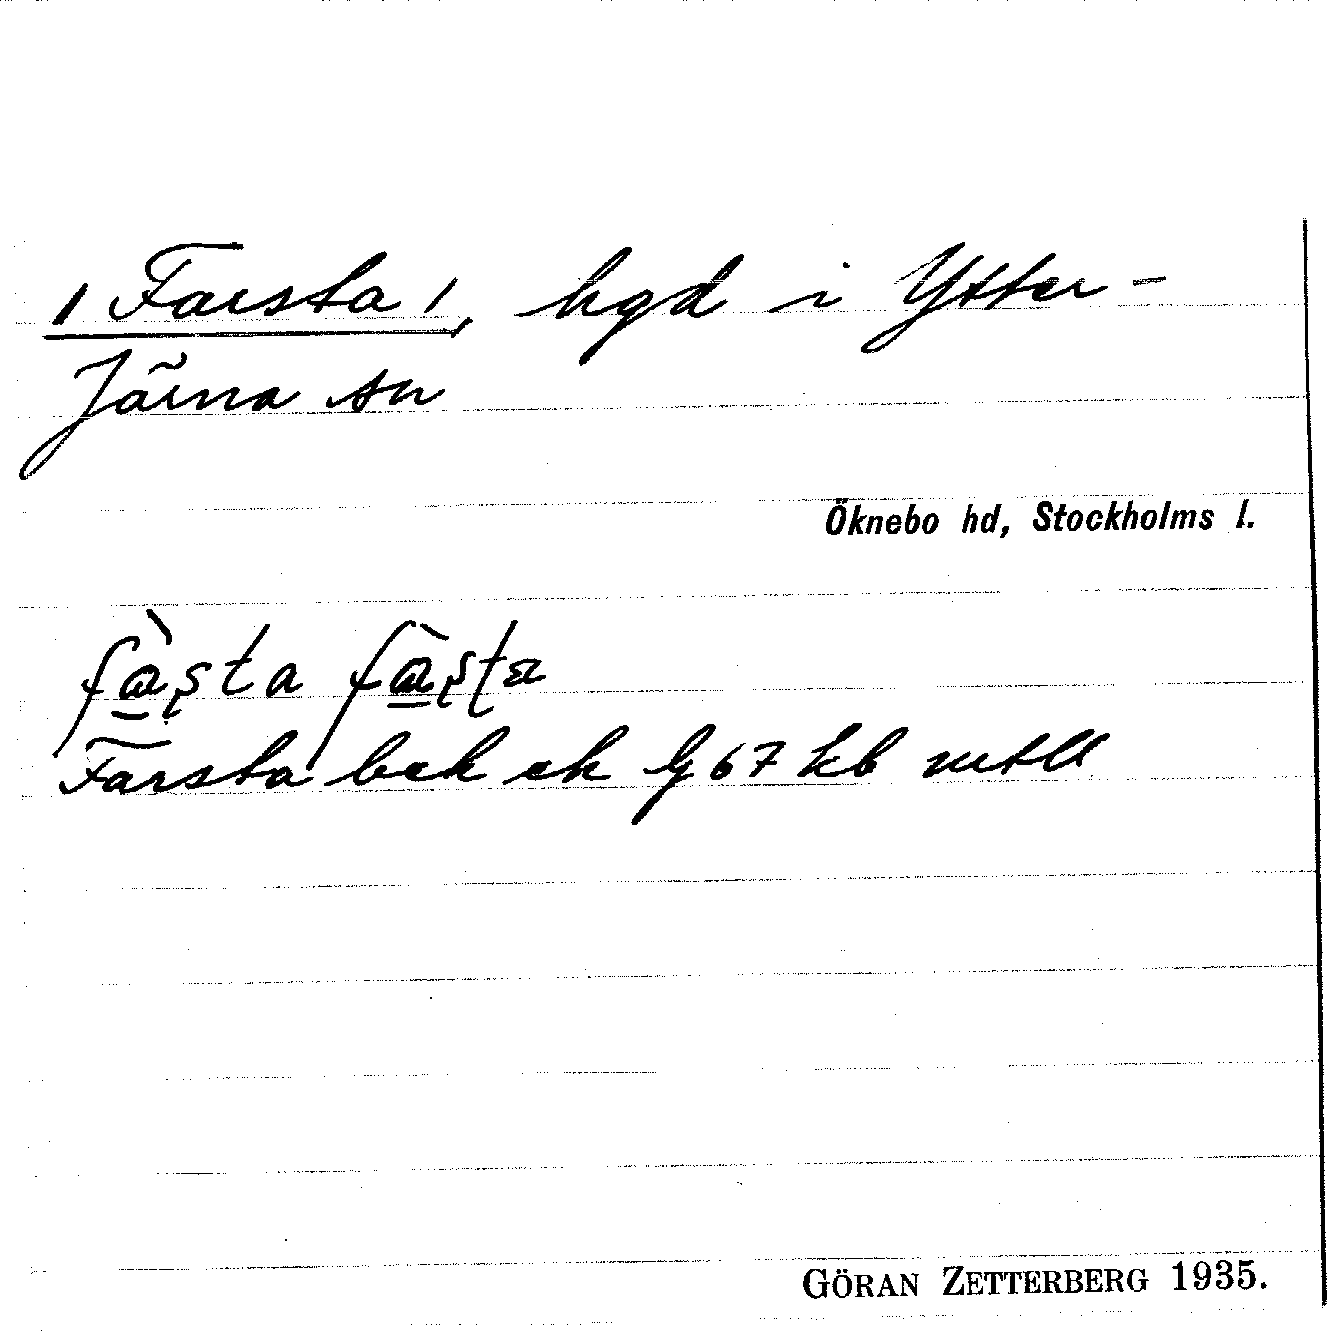 / Farsta /, hgd i Ytter-
Järna sn
Öknebo hd, Stockholms l.
fàʂta fàʂta
Farsta bek ek Lg 67 kb mtll
GÖRAN ZETTERBERG 1935.